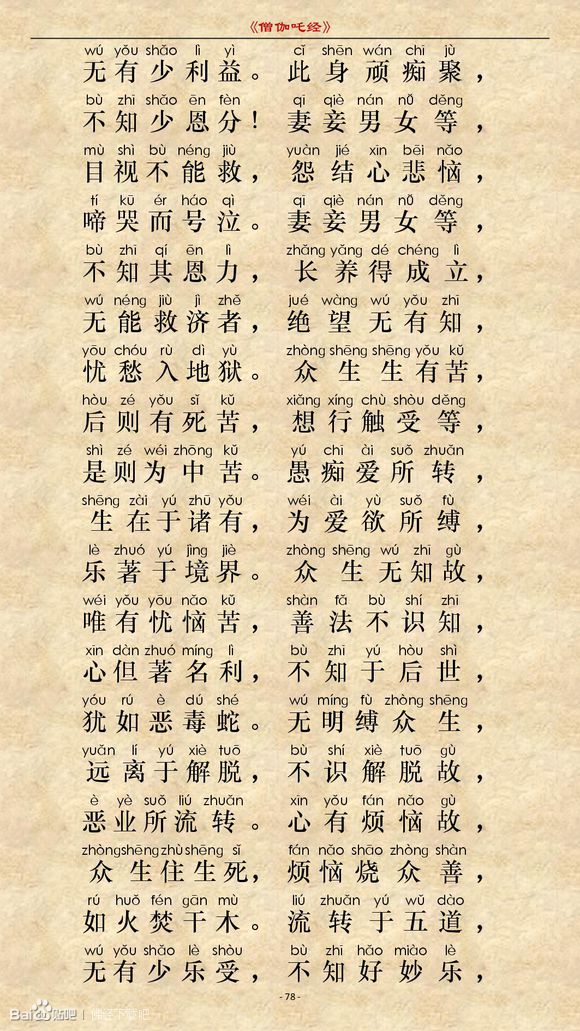 《僧伽吒经》
wú yǒu shǎo lì yì cǐ shēn wán chī jù
无有少利益。此身顽痴聚，
bù zhī shǎo ēn fèn qī qiè nán nǚ děng
不知少恩分！妻妾男女等，
mù shì bù néng jiù yuàn jié xīn bēi nǎo
目视不能救，怨结心悲恼，
tí kū ér háo qì qī qiè nán nǚ děng
啼哭而号泣。妻妾男女等，
bù zhī qí ēn lì zhǎng yǎng dé chéng lì
不知其恩力，长养得成立，
wú néng jiù jì zhě jué wàng wú yǒu zhī
无能救济者，绝望无有知，
yōu chóu rù dì yù zhòng shēng shēng yǒu kǔ
忧愁入地狱。众生生有苦，
hòu zé yǒu sǐ kǔ xiǎng xíng chù shòu děng
后则有死苦，想行触受等，
shì zé wéi zhōng kǔ yú chī ài suǒ zhuǎn
是则为中苦。愚痴爱所转，
shēng zài yú zhū yǒu wéi ài yù suǒ fù
生在于诸有，为爱欲所缚，
lè zhuó yú jìng jiè zhòng shēng wú zhī gù
乐著于境界。众生无知故，
wéi yǒu yōu nǎo kǔ shàn fǎ bù shí zhī
唯有忧恼苦，善法不识知，
xīn dàn zhuó míng lì bù zhī yú hòu shì
心但著名利，不知于后世，
yóu rú è dú shé wú míng fù zhòng shēng
犹如恶毒蛇。无明缚众生，
yuǎn lí yú xiè tuō bù shí xiè tuō gù
远离于解脱，不识解脱故，
è yè suǒ liú zhuǎn xīn yǒu fán nǎo gù
恶业所流转。心有烦恼故，
zhòng shēng zhù shēng sǐ fán nǎo shāo zhòng shàn
众生住生死，烦恼烧众善，
rú huǒ fén gān mù liú zhuǎn yú wǔ dào
如火焚干木。流转于五道，
wú yǒu shǎo lè shòu bù zhī hǎo miào lè
无有少乐受，不知好妙乐，
- 78 -
Bai 贴吧 | 佛经下载吧